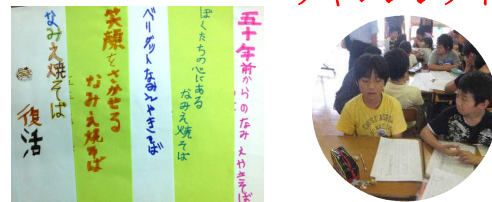 五十年前からのなみえやきそば
ぼくたちの心にある
なみえ焼そば
ベリグットなみえやきそば
笑顔をさかせる
なみえ焼そば
なみえ焼そば
復活